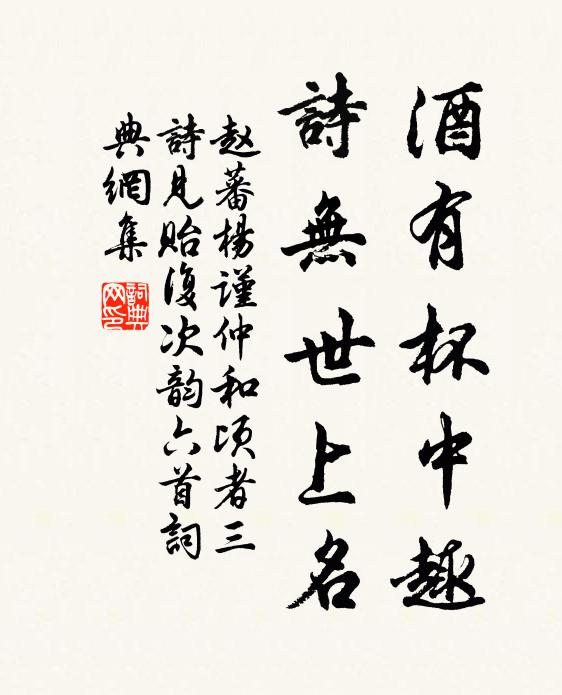 酒有杯中趣
詩無世上名
赵蕃楊谨仲和顷者三
詩見貽復次韵六首詞
典網集
詞典网印